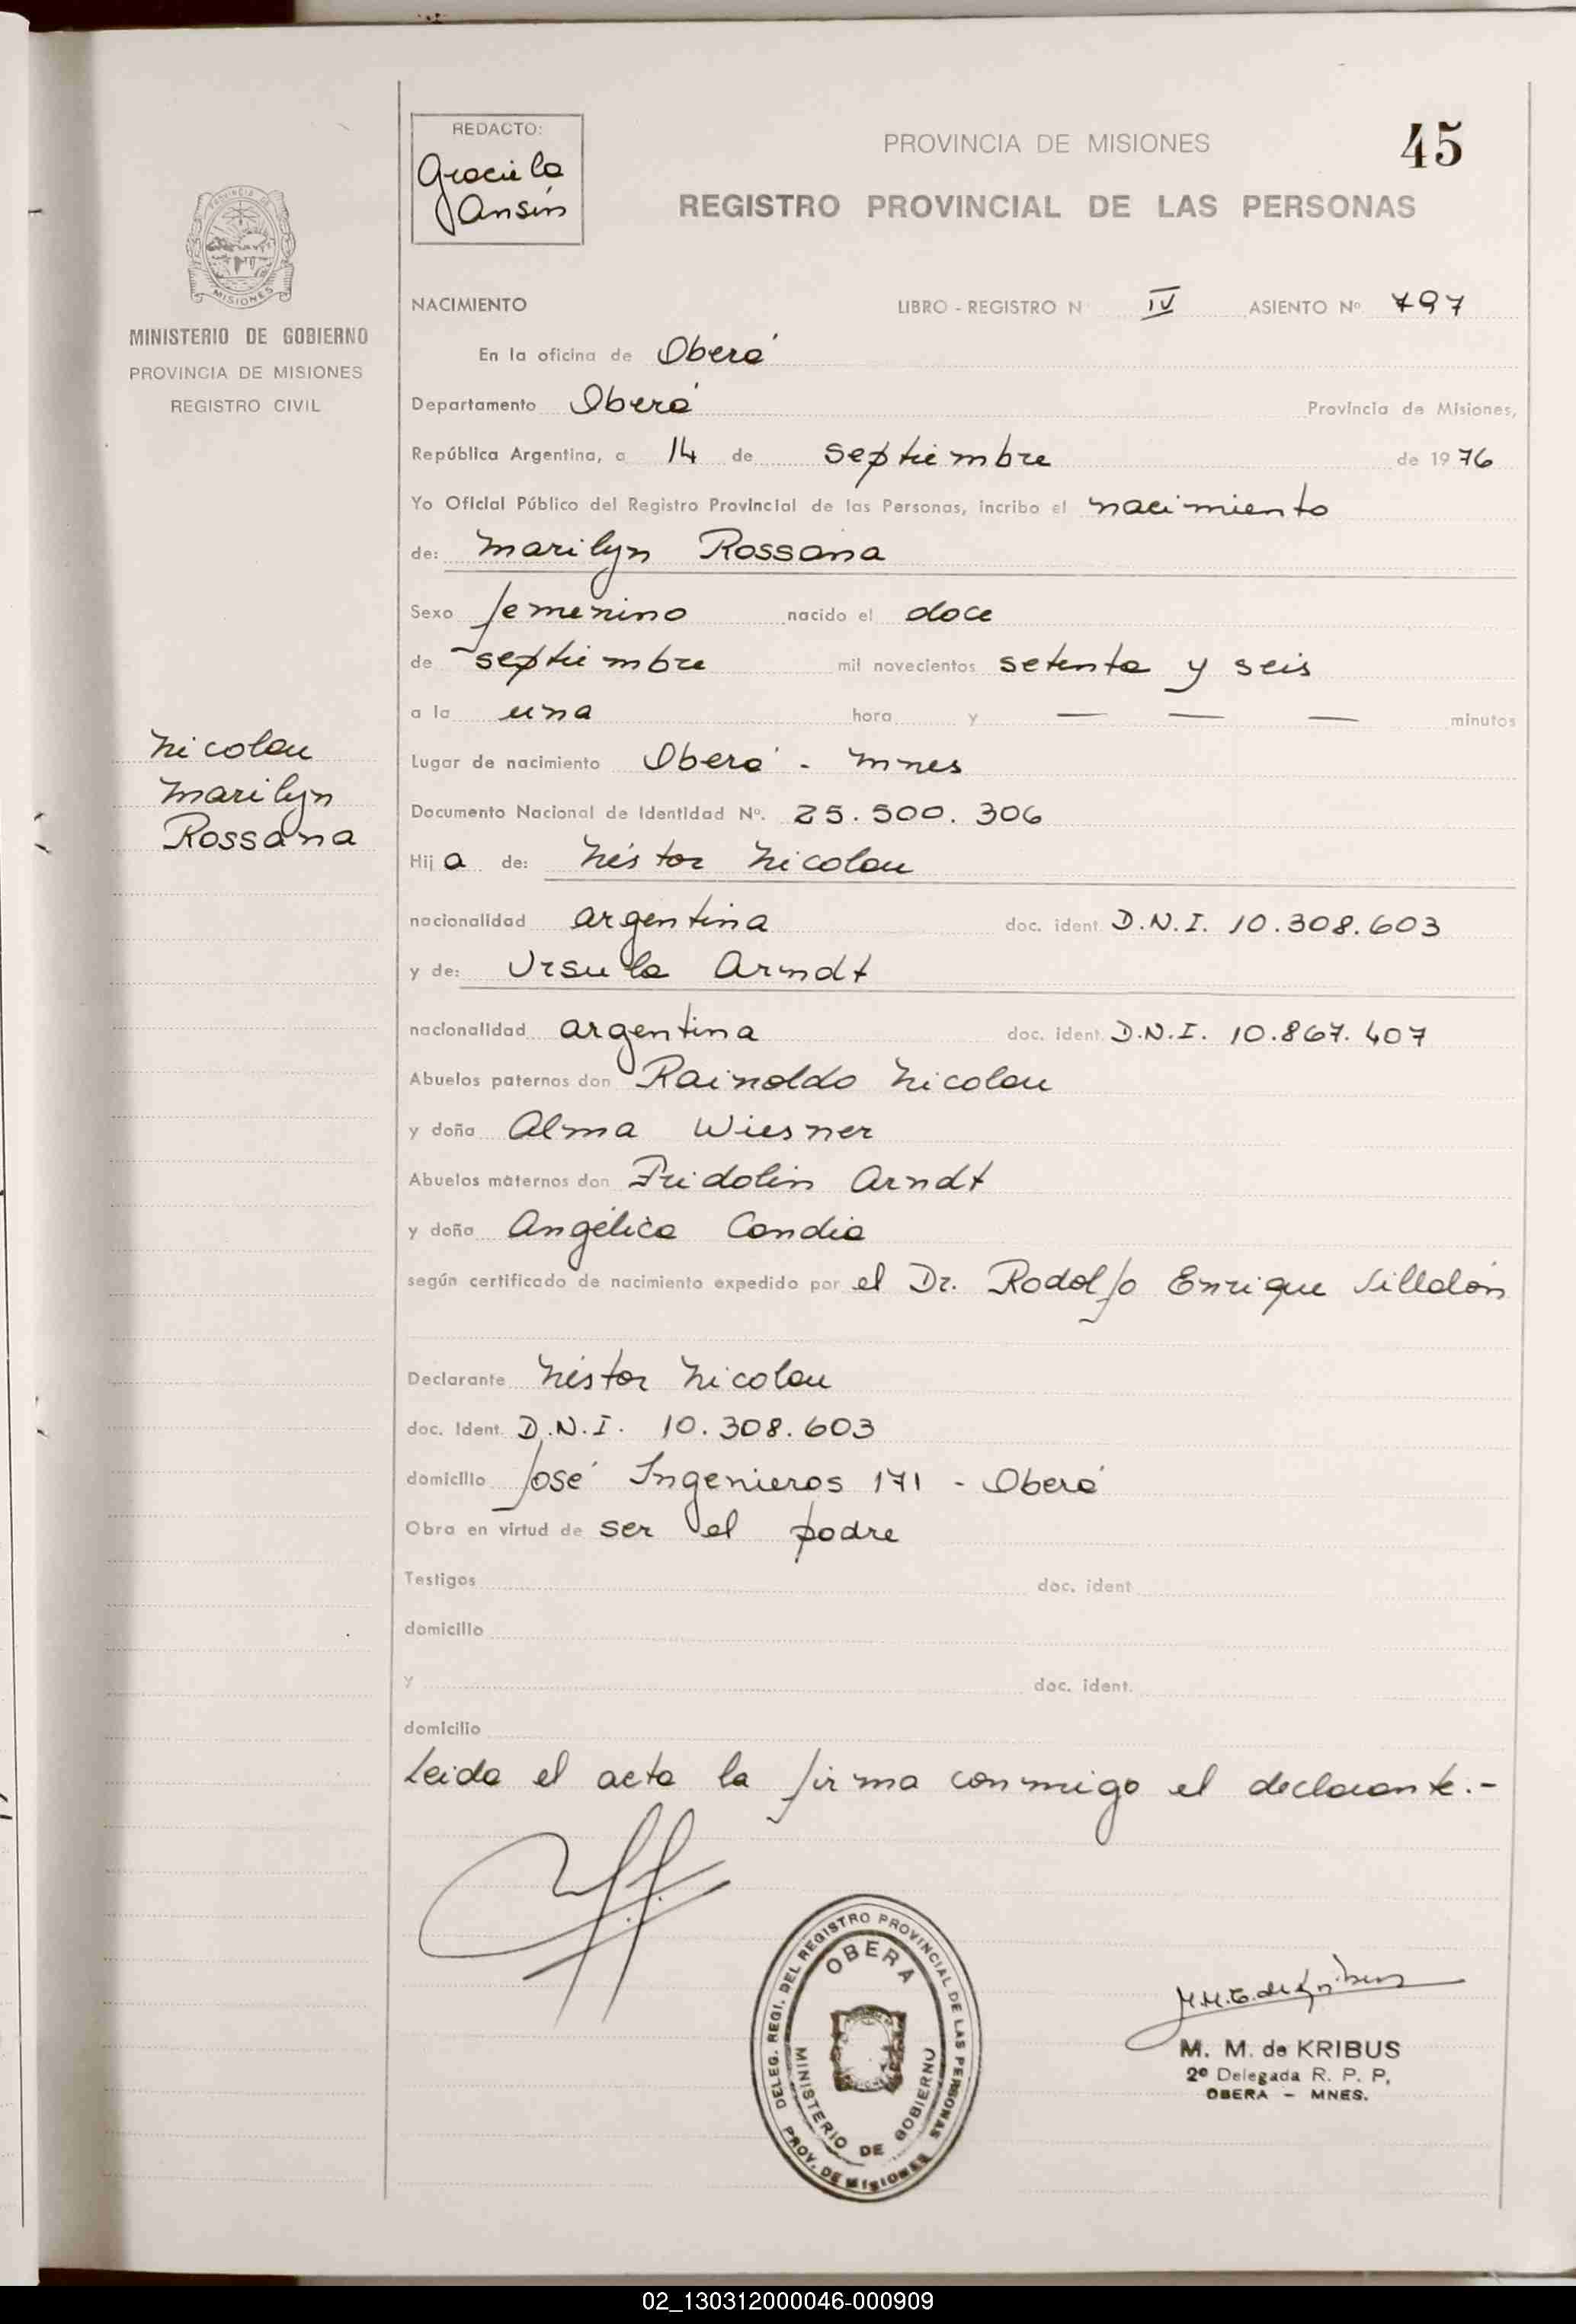 REDACTO:
Graciela
Ansin
PROVINCIA DE MISIONES
45
REGISTRO PROVINCIAL DE LAS PERSONAS
PROVINCIA DE
MISIONES
MINISTERIO DE GOBIERNO
PROVINCIA DE MISIONES
REGISTRO CIVIL
NACIMIENTO LIBRO - REGISTRO N IV ASIENTO Nº 797
En la oficina de Oberá
Departamento Oberá Provincia de Misiones,
República Argentina, a 14 de septiembre de 1976
Yo Oficial Público del Registro Provincial de las Personas, incribo el nacimiento
de: Marilyn Rossana
Sexo femenino nacido el doce
de septiembre mil novecientos setenta y seis
a la una hora y — — — minutos
Nicolau
Marilyn
Rossana
Lugar de nacimiento Oberá - Mnes
Documento Nacional de Identidad Nº. 25.500.306
Hija de: Néstor Nicolau
nacionalidad argentina doc. ident D.N.I. 10.308.603
y de: Ursula Arndt
nacionalidad argentina doc. ident. D.N.I. 10.867.407
Abuelos paternos don Rainoldo Nicolau
y doña Alma Wiesner
Abuelos maternos don Fridolin Arndt
y doña Angélica Candia
según certificado de nacimiento expedido por el Dr. Rodolfo Enrique Villalón
Declarante Néstor Nicolau
doc. Ident. D.N.I. 10.308.603
domicilio José Ingenieros 171 - Oberá
Obra en virtud de ser el padre
Testigos doc. ident
domicilio
y doc. ident.
domicilio
Leida el acta la firma conmigo el declarante.-
DELEG. REGI. DEL REGISTRO PROVINCIAL DE LAS PERSONAS
PROV. DE MISIONES
OBERA
MINISTERIO DE GOBIERNO
M. M. de KRIBUS
2º Delegada R. P. P.
OBERA - MNES.
02_130312000046-000909